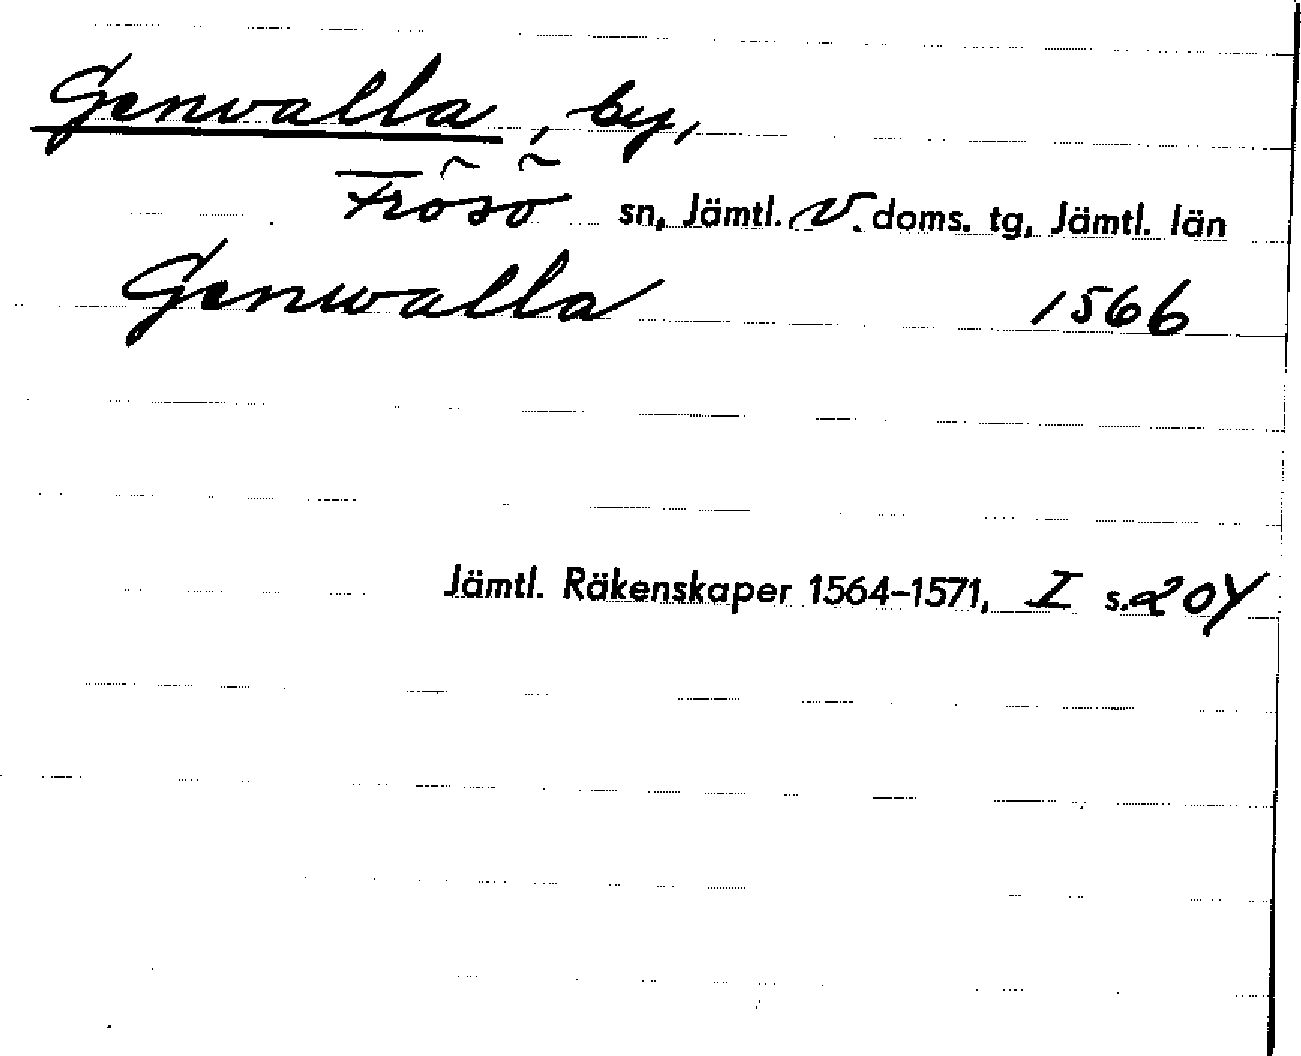 Genvalla, by,
Frösö sn, Jämtl. V. doms. tg, Jämtl. län
Genwalla 1566
Jämtl. Räkenskaper 1564-1571, I s. 204